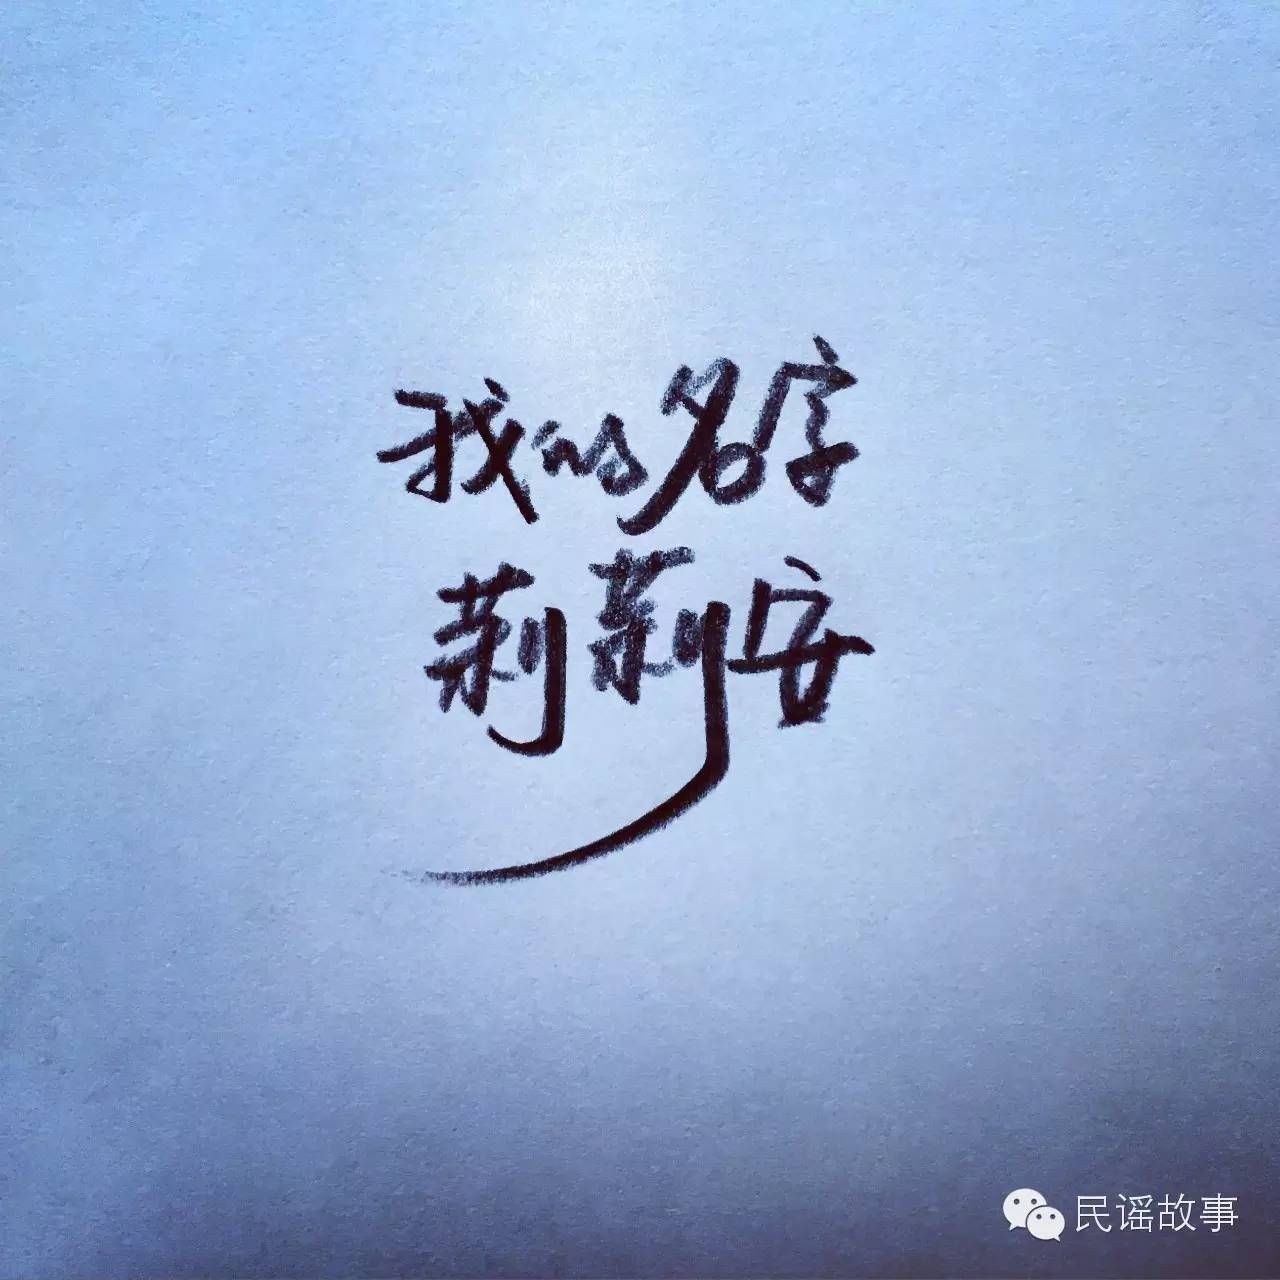 我的名字
莉莉安
民谣故事